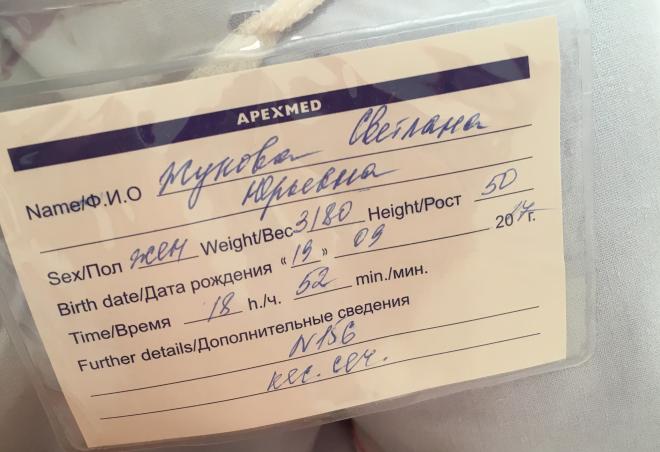 APEXMED
Name/Ф.И.О Жукова Светлана
Юрьевна
Sex/Пол жен Weight/Вес 3180 Height/Рост 50
Birth date/Дата рождения «19» 09 2017г.
Time/Время 18 h./ч. 52 min./мин.
Further details/Дополнительные сведения
N156
кес. сеч.